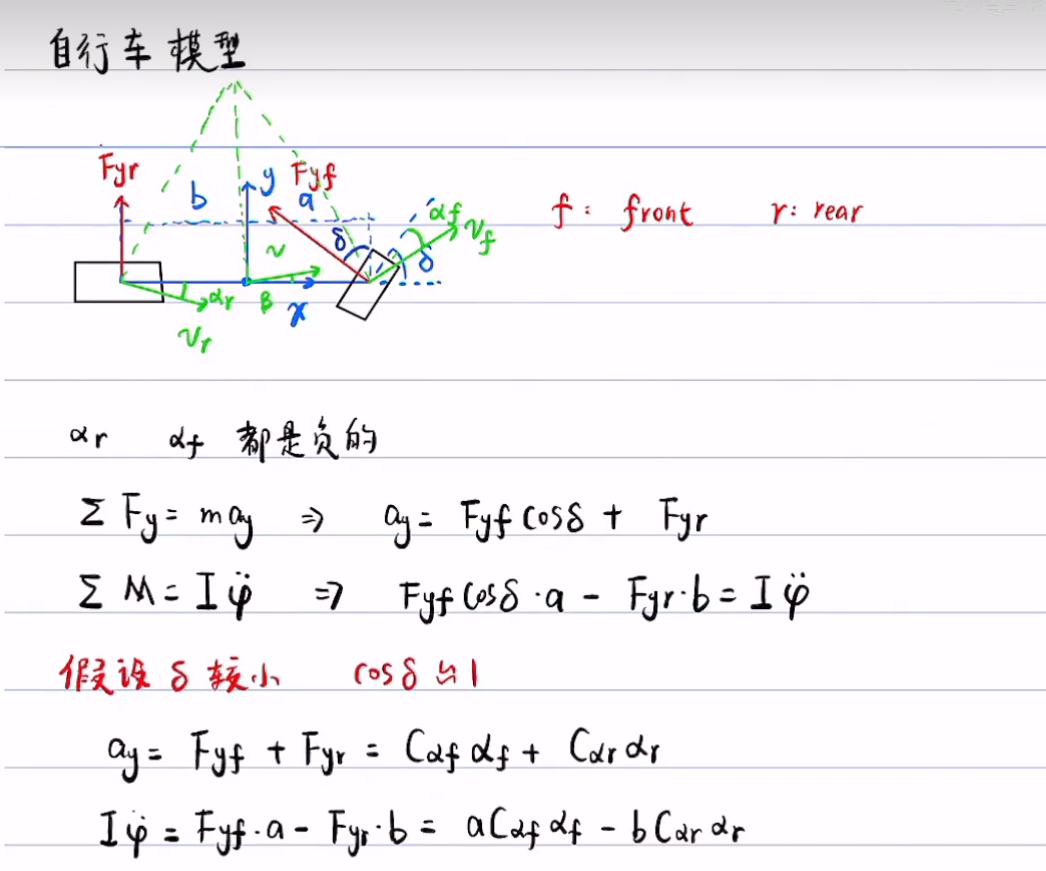 自行车模型
Fyr
b
y
Fyf
a
δ
αf
vf
δ
v
αr
β
x
vr
f: front r: rear
αr αf 都是负的
Σ Fy = m ay ⇒ ay = Fyf cosδ + Fyr
Σ M = I φ̈ ⇒ Fyf cosδ · a - Fyr · b = I φ̈
假设 δ 较小 cosδ ≈ 1
ay = Fyf + Fyr = Cαf αf + Cαr αr
I φ̈ = Fyf · a - Fyr · b = a Cαf αf - b Cαr αr